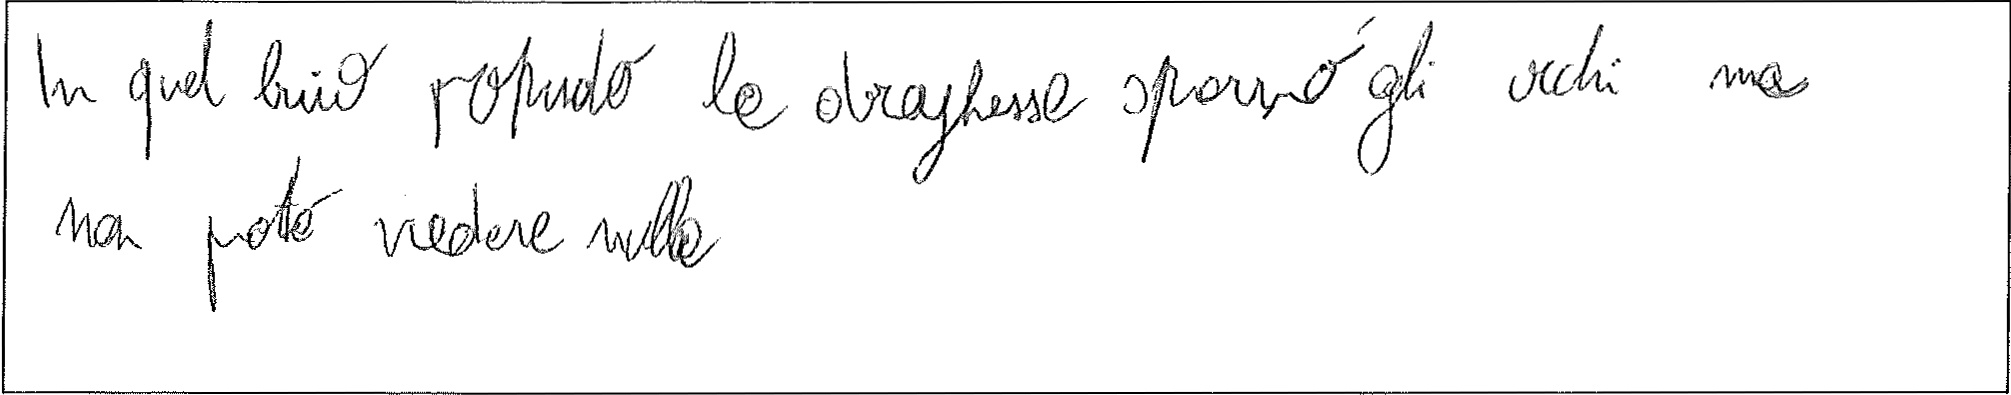 In quel buio profondo la draghessa sparnò gli occhi ma
non poté vedere nulla